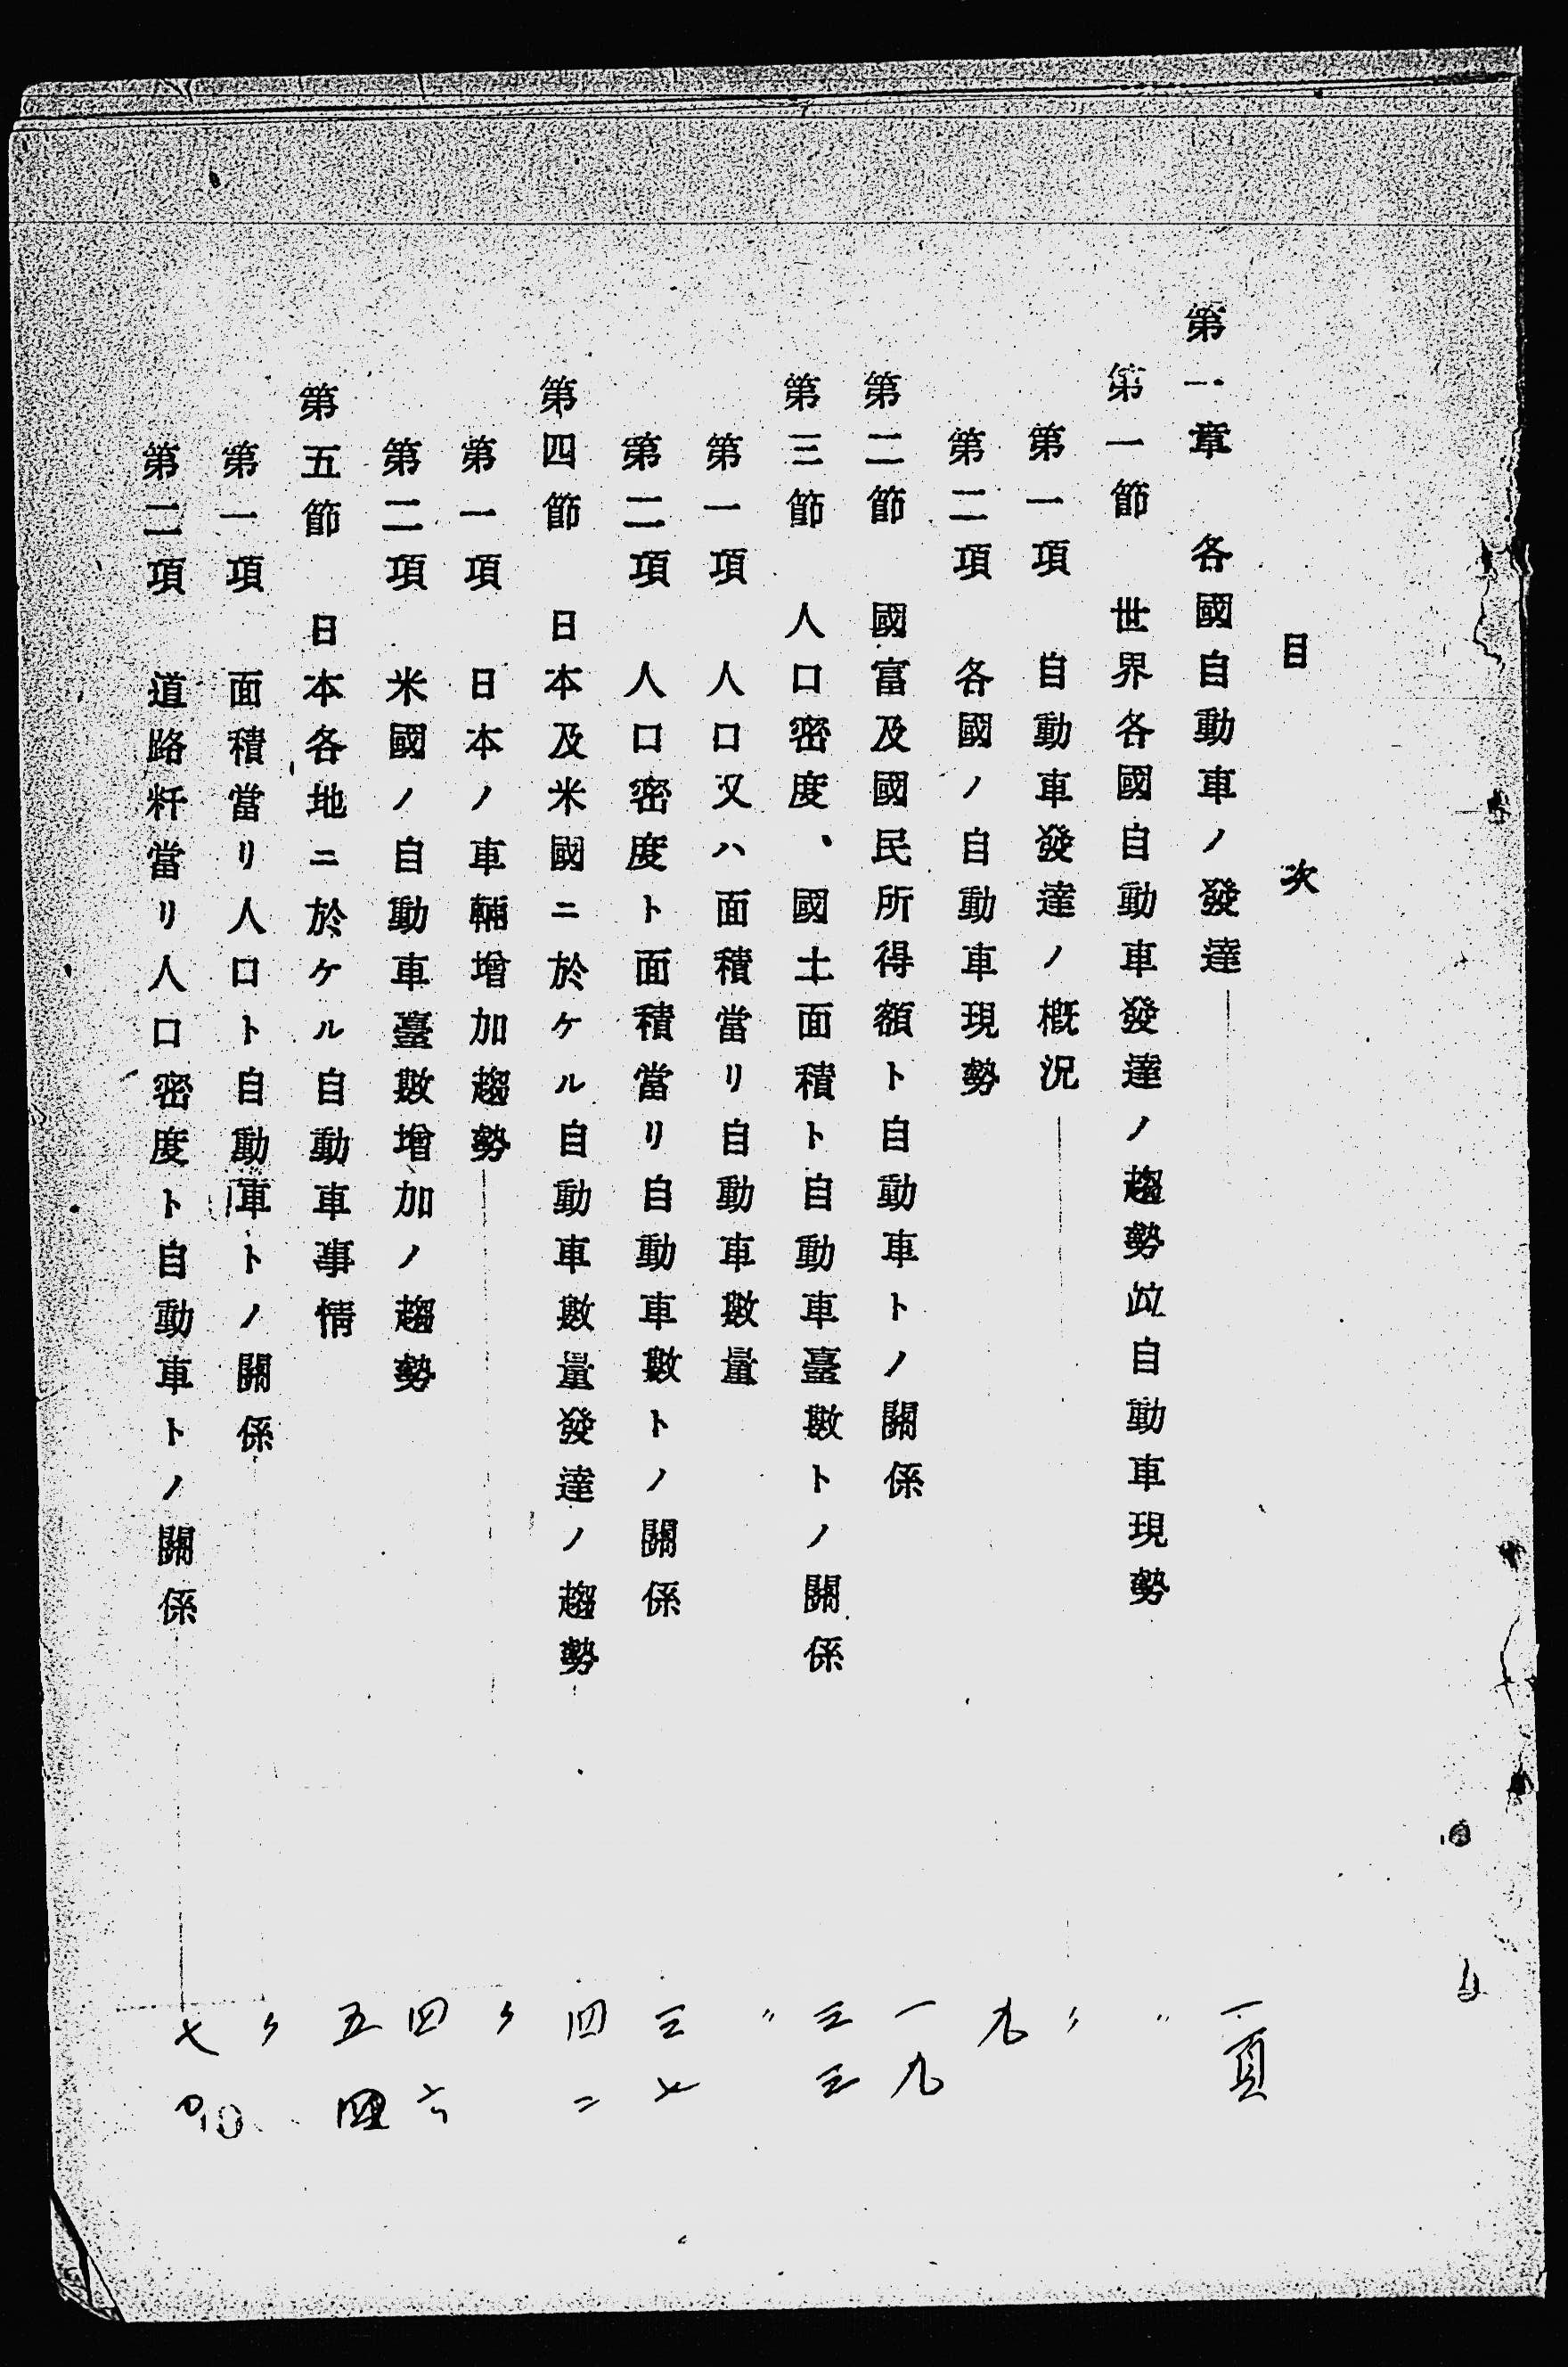 目次
第一章 各國自動車ノ發達 一頁
第一節 世界各國自動車發達ノ趨勢竝自動車現勢 〃
第一項 自動車發達ノ概況 〃
第二項 各國ノ自動車現勢 九
第二節 國富及國民所得額ト自動車トノ關係 一九
第三節 人口密度、國土面積ト自動車臺數トノ關係 三三
第一項 人口又ハ面積當リ自動車數量 〃
第二項 人口密度ト面積當リ自動車數トノ關係 三七
第四節 日本及米國ニ於ケル自動車數量發達ノ趨勢 四二
第一項 日本ノ車輛增加趨勢 〃
第二項 米國ノ自動車臺數增加ノ趨勢 四六
第五節 日本各地ニ於ケル自動車事情 五四
第一項 面積當リ人口ト自動車トノ關係 〃
第二項 道路粁當リ人口密度ト自動車トノ關係 七